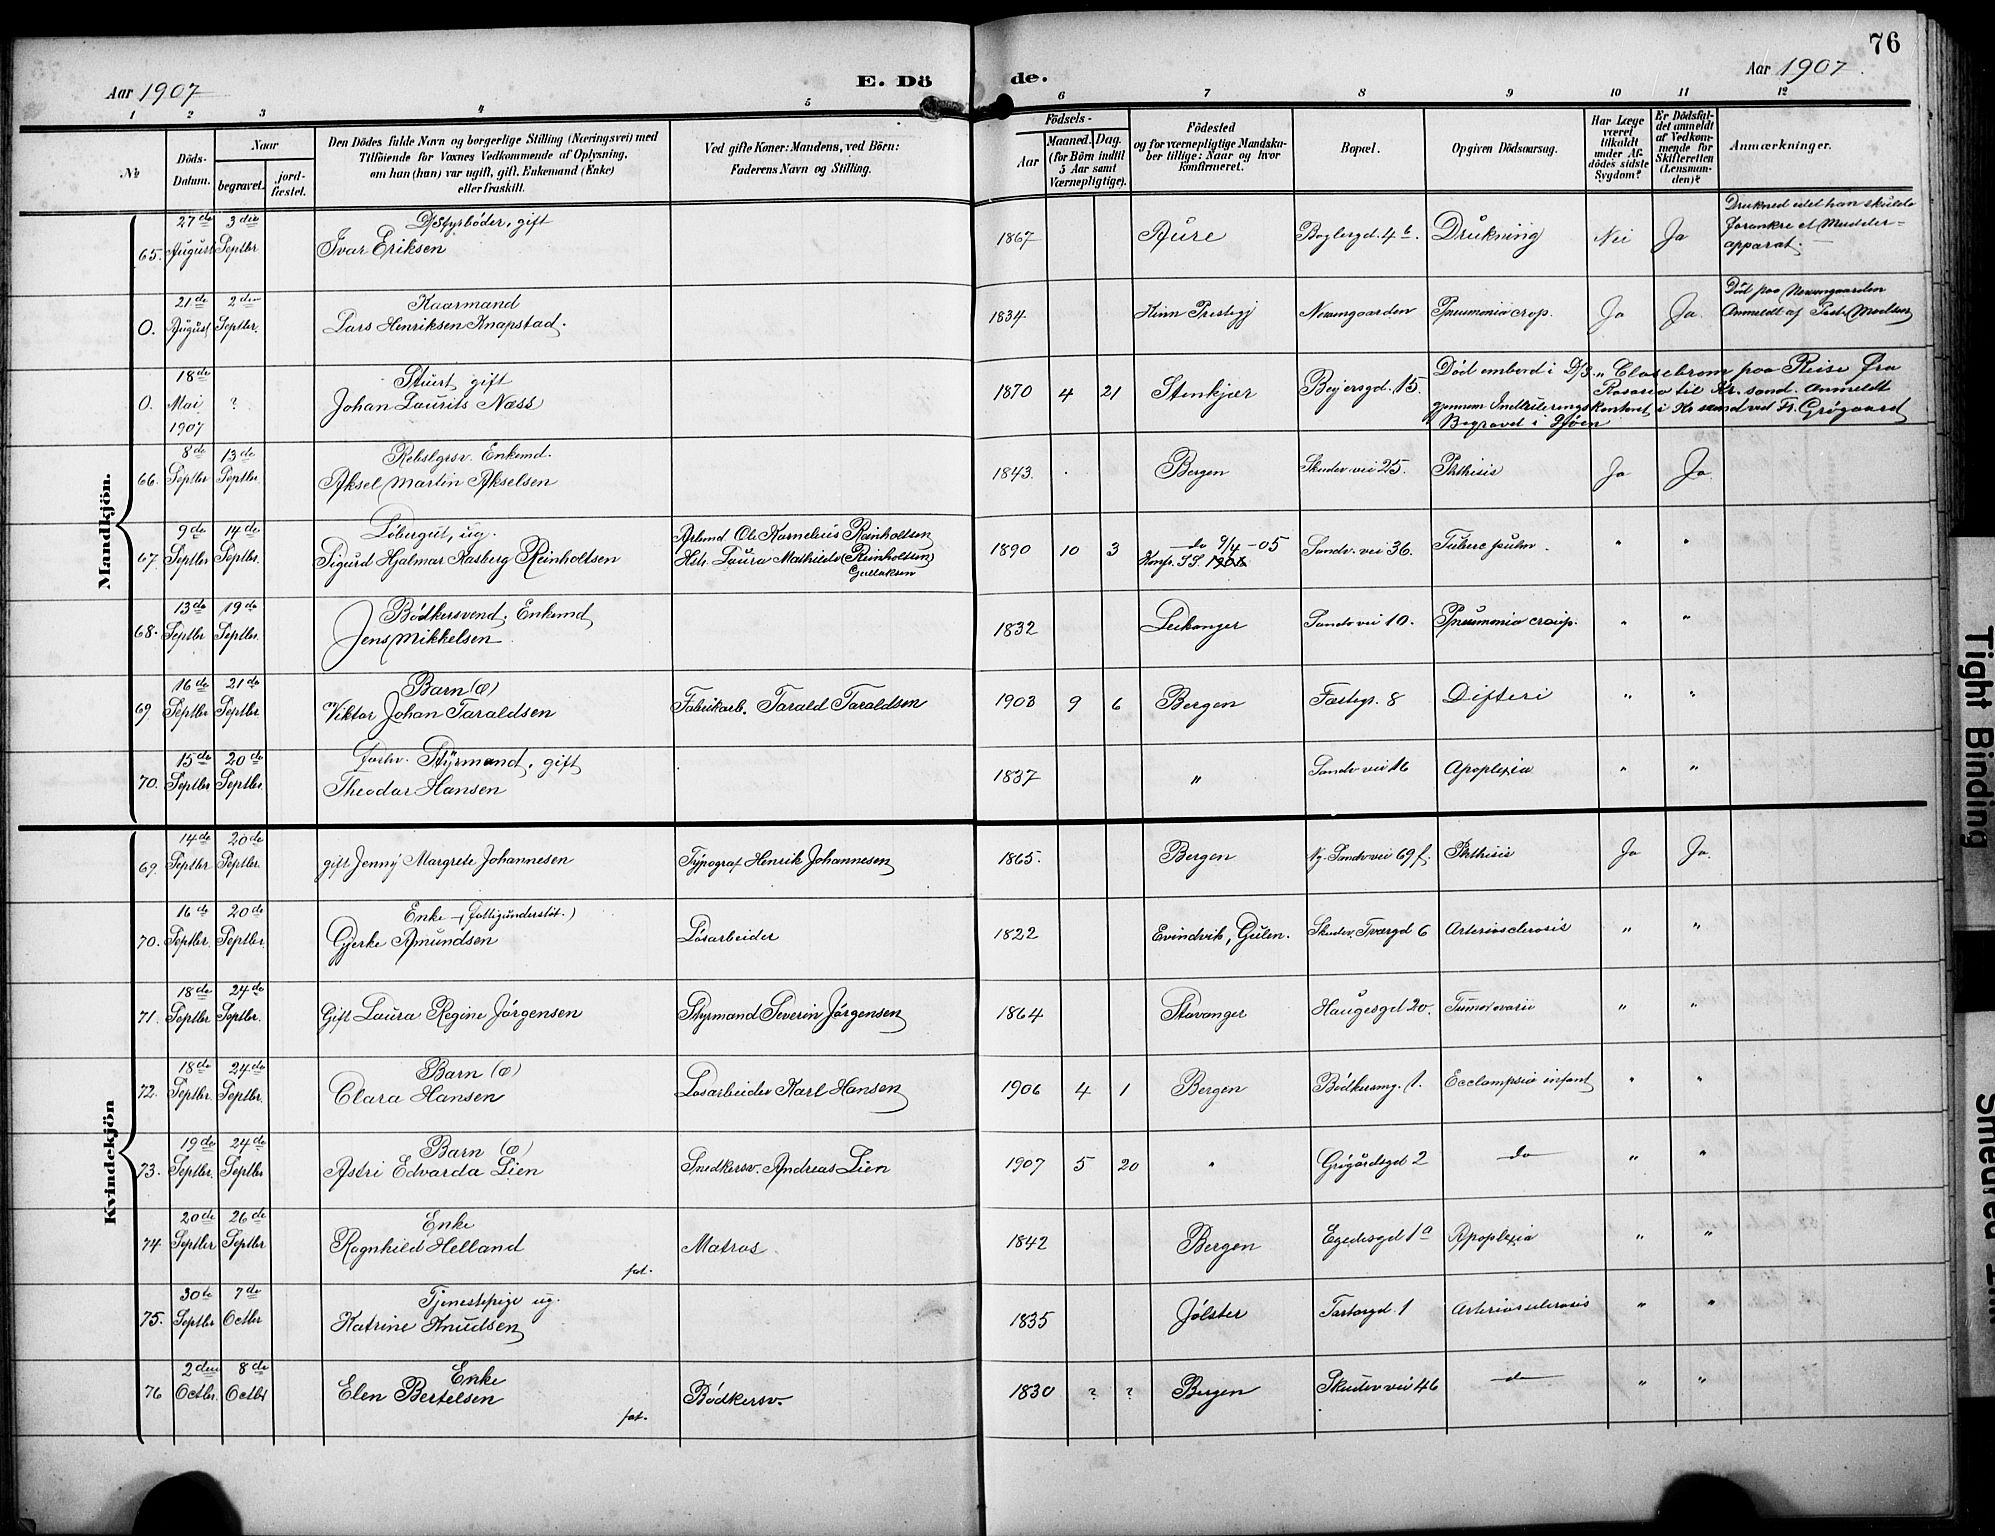 76
Aar 1907
E. Dö
de.
Aar 1907
1 2 3 4 5 6 7 8 9 10 11 12
№
Döds-
Datum.
Naar
begravet.
jord-
fæstet.
Den Dödes fulde Navn og borgerlige Stilling (Næringsvei) med
Tilföiende for Voxnes Vedkommende af Oplysning,
om han (hun) var ugift, gift, Enkemand (Enke)
eller fraskilt.
Ved gifte Koner: Mandens, ved Börn:
Faderens Navn og Stilling.
Födsels-
Aar
Maaned.
Dag.
(for Börn indtil
5 Aar samt
Værnepligtige).
Födested
og for værnepligtige Mandska-
ber tillige: Naar og hvor
konfirmeret.
Bopæl.
Opgiven Dödsaarsag.
Har Læge
været
tilkaldt
under Af-
dödes sidste
Sygdom?
Er Dödsfal-
det anmeldt
af Vedkom-
mende for
Skifteretten
(Lensman-
den)?
Anmærkninger.
Mandkjön.
27de 3die D/S fyrböder, gift
65. August Septbr Ivar Eriksen 1867 Aure Boglergd. 4b. Drukning Nei Ja
Drukned idet han skulde
forankre et Mudder-
apparat.
21de 2den Kaarmand
0. August Septbr. Lars Henriksen Knapstad. 1834. Kinn Prestegj Nevengaarden Pneumonia crop. Ja Ja
Död paa Nevengaarden
Anmeldt af Past. Madsen
18de Stuert gift
0. Mai ? Johan Laurits Næss 1870 4 21 Stenkjær Beyersgd. 15.
1907
Död ombord i D/S „Closebrom paa Reise fra
Rosario til Kr.sand. Anmeldt
gjennem Indrulleringskontoret i Kr sand ved Fr. Grögaard
Begravet i Sjöen
8de 13de Rebslgrsv. Enkemd.
66. Septbr Septbr. Aksel Martin Akselsen 1843. Bergen Skudev. vei 25. Phthisis Ja Ja
9de 14de Löbergut, ug. Arbmd Ole Kornelius Reinholtsen
67. Septbr Septbr. Sigurd Hjalmar Aasberg Reinholtsen Hstr. Laura Mathilde (Reinholtsen) 1890 10 3 do 9/4 - 05 Sandv. vei 36. Tuberc pulm. " "
Gullaksen Konfr. SS. 1904
13de 19de Bödkersvend. Enkemd
68. Septbr Septbr. Jens Mikkelsen 1832 Leikanger Sandv vei 10. Pneumonia croup. " "
16de 21de Barn (æ)
69 Septbr Septbr Viktor Johan Taraldsen Fabrikarb. Tarald Taraldsen 1903 9 6 Bergen Fæstegr. 8 Difteri " "
15de 20de Forhv. Styrmand, gift
70. Septbr Septbr. Theodor Hansen 1837 " Sandv vei 16 Apoplexia " "
Kvindekjön
14de 20de
69. Septbr Septbr. gift Jenny Margrete Johannesen Typograf Henrik Johannesen 1865. Bergen Ny. Sandv vei 69 f. Phthisis Ja Ja.
16de 20de Enke (Fattigunderstöt.)
70. Septbr. Septbr. Gjerke Amundsen Lösarbeider 1822 Evindvik, Gulen. Skudev. Tværgd 6 Arteriosclerosis " "
18de 24de
71. Septbr Septbr. Gift Laura Regine Jörgensen Styrmand Severin Jörgensen 1864 Stavanger Haugesgd 20. Tumor ovarii " "
18de 24de Barn (æ)
72. Septbr. Septbr. Clara Hansen Lösarbeider Karl Hansen 1906 4 1 Bergen Bödkersmg. 1. Ecclampsia infant " "
19de 24de Barn (æ)
73. Septbr. Septbr Astri Edvarda Lien Snedkersv. Andreas Lien 1907 5 20 " Grögårdsgd 2 do " "
20de 26de Enke
74 Septbr Septbr Ragnhild Helland Matros 1842 Bergen Egedesgd 1a Apoplexia " "
fat.
30te 7de Tjenestepige ug.
75. Septbr Octbr Katrine Knudsen 1835 Jölster Tartargd. 1 Arteriosclerosis " "
2den 8de Enke
76 Octbr. Octbr Elen Bertelsen Bödkersv. 1830 ? ? Bergen Skudev vei 46 do " "
fat.
Tight Binding